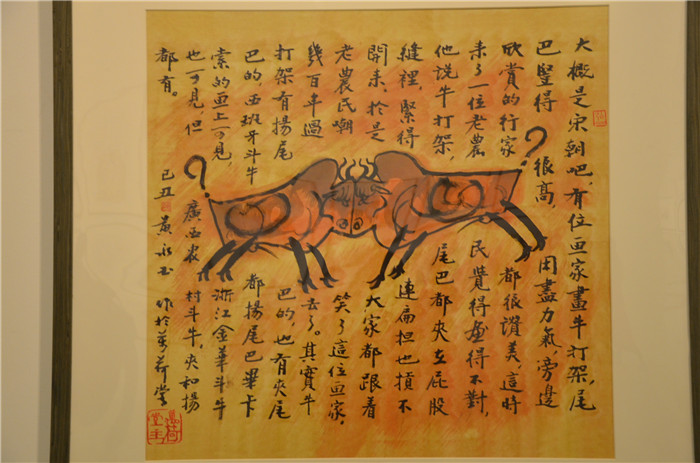 大概是宋朝吧,有位画家畫牛打架,尾
巴豎得很高,用盡力氣,旁邊
欣赏的行家都很讚美,這時
来了一位老農民覺得畫得不對,
他说牛打架,尾巴都夾在屁股
縫裡,緊得連扁担也摃不
開来,於是大家都跟着
老農民嘲笑了這位画家,
幾百年過去了。其實牛
打架有揚尾巴的,也有夾尾
巴的,西班牙斗牛都揚尾巴畢卡
索的画上可見,浙江金華斗牛
也可見,但廣西農村斗牛,夾和揚
都有。
己丑 黄永玉 作於萬荷堂
萬荷堂主